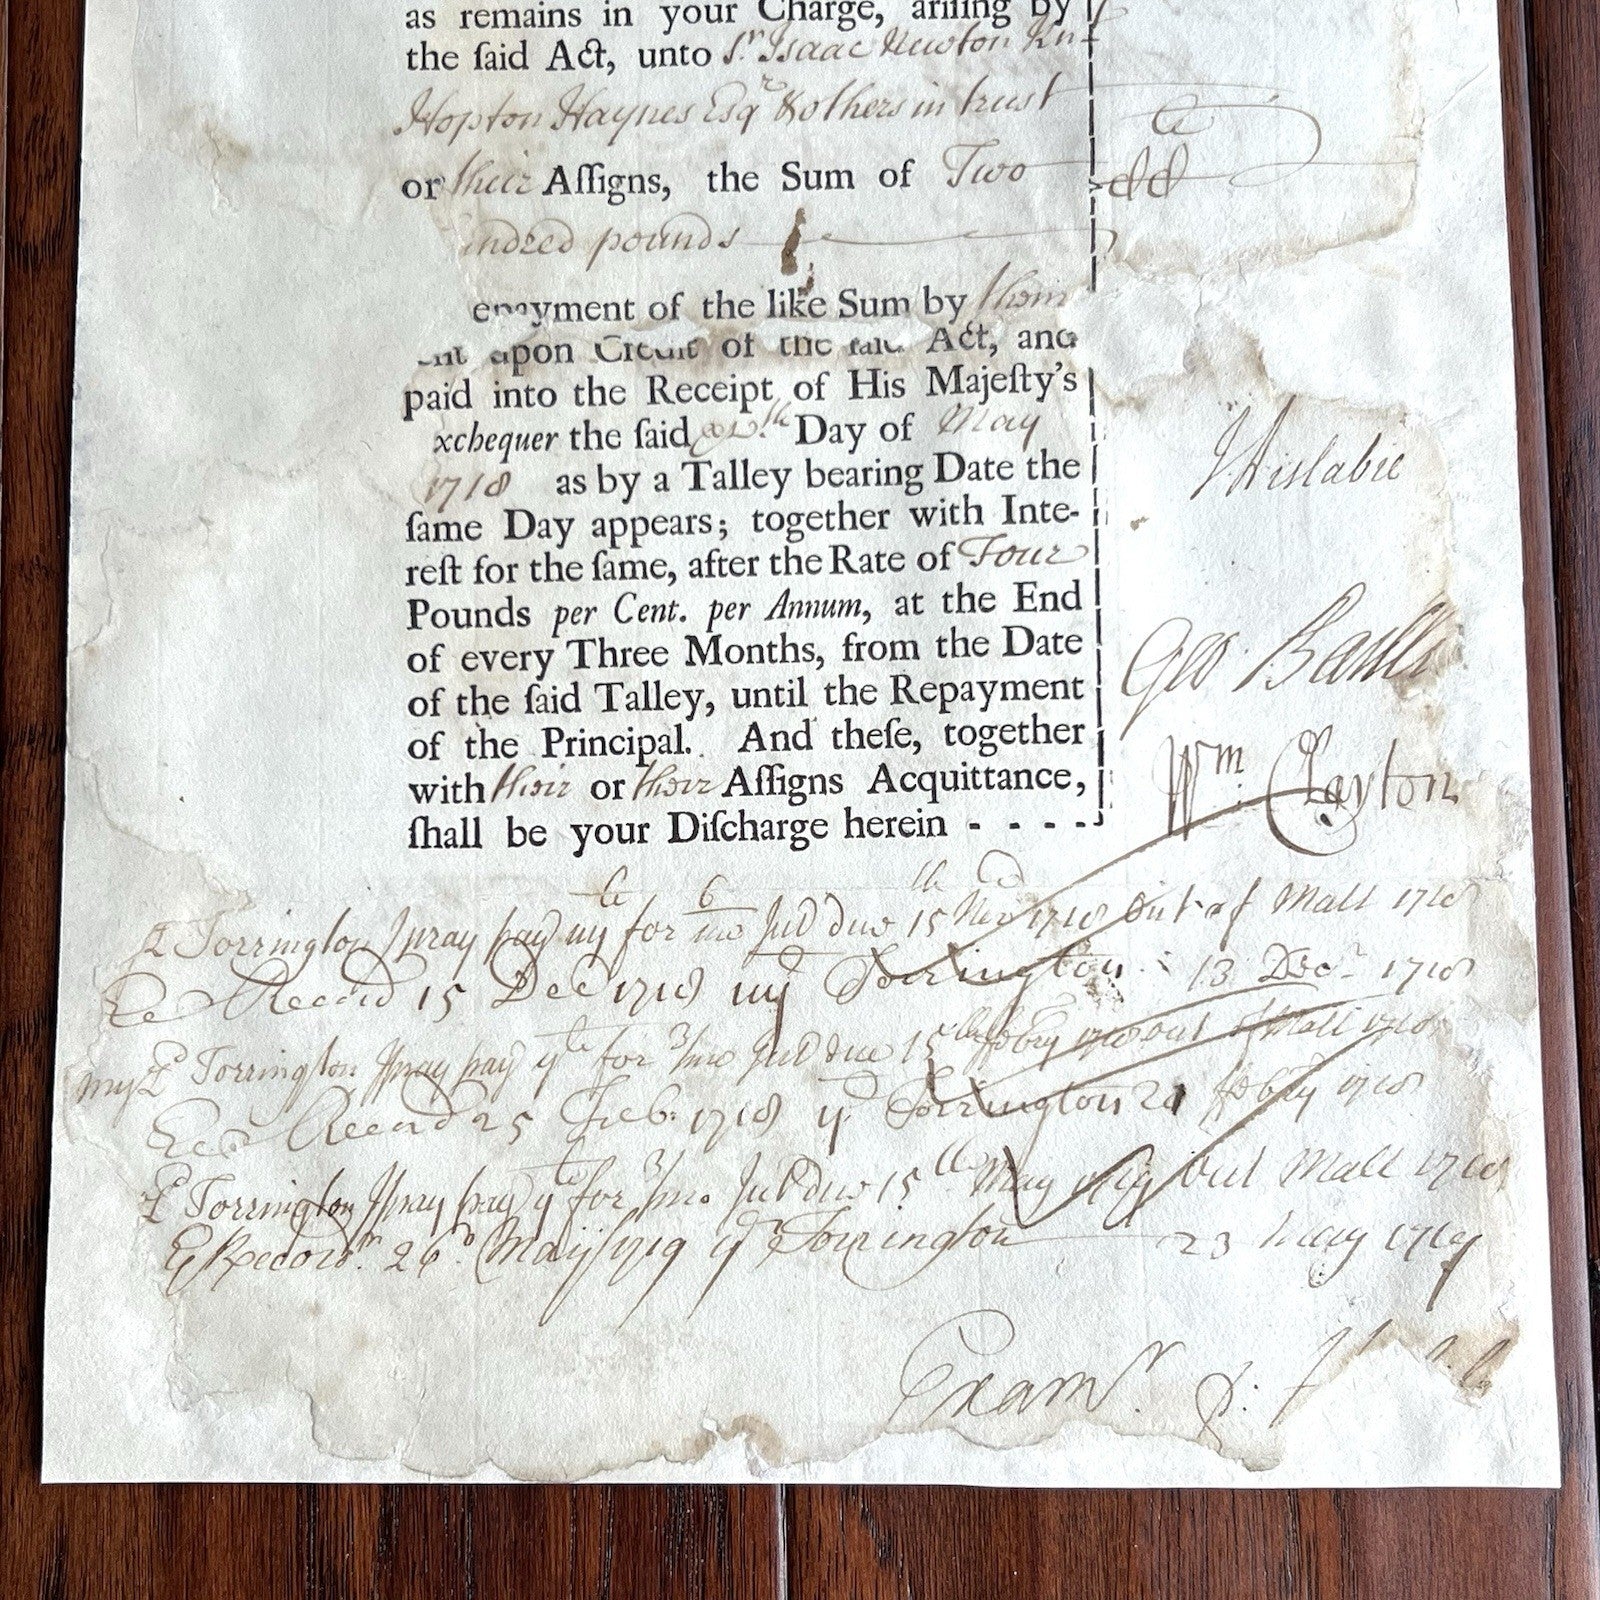 as remains in your Charge, ariſing by
the ſaid Act, unto Sr. Isaac Newton Knt
Hopton Haynes Esqr & others in trust
or their Aſſigns, the Sum of Two
indred pounds
epayment of the like Sum by them
ent upon Credit of the ſaid Act, and
paid into the Receipt of His Majeſty's
xchequer the ſaid Day of May
1718 as by a Talley bearing Date the
ſame Day appears; together with Inte-
reſt for the ſame, after the Rate of Four
Pounds per Cent. per Annum, at the End
of every Three Months, from the Date
of the ſaid Talley, until the Repayment
of the Principal. And theſe, together
with their or their Aſſigns Acquittance,
ſhall be your Diſcharge herein - - - -
J Aislabie
Geo Baillie
Wm: Clayton
Ld Torrington I pray pay for 6 mo Int due 15th Nov 1718 out of Malt 1718
Record 15 Dec 1718 Torrington 13 Decr 1718
my Ld Torrington I pray pay ye for 3 mo Int due 15th ffebry 1718 out of Malt 1718
Record 25 Feb: 1718 Torrington 20 ffebry 1718
Ld Torrington I pray pay ye for 3 mo. Int due 15th May 1719 out Malt 1718
Record. 26o. Maij 1719 Torrington 23 May 1719
Examr. p: